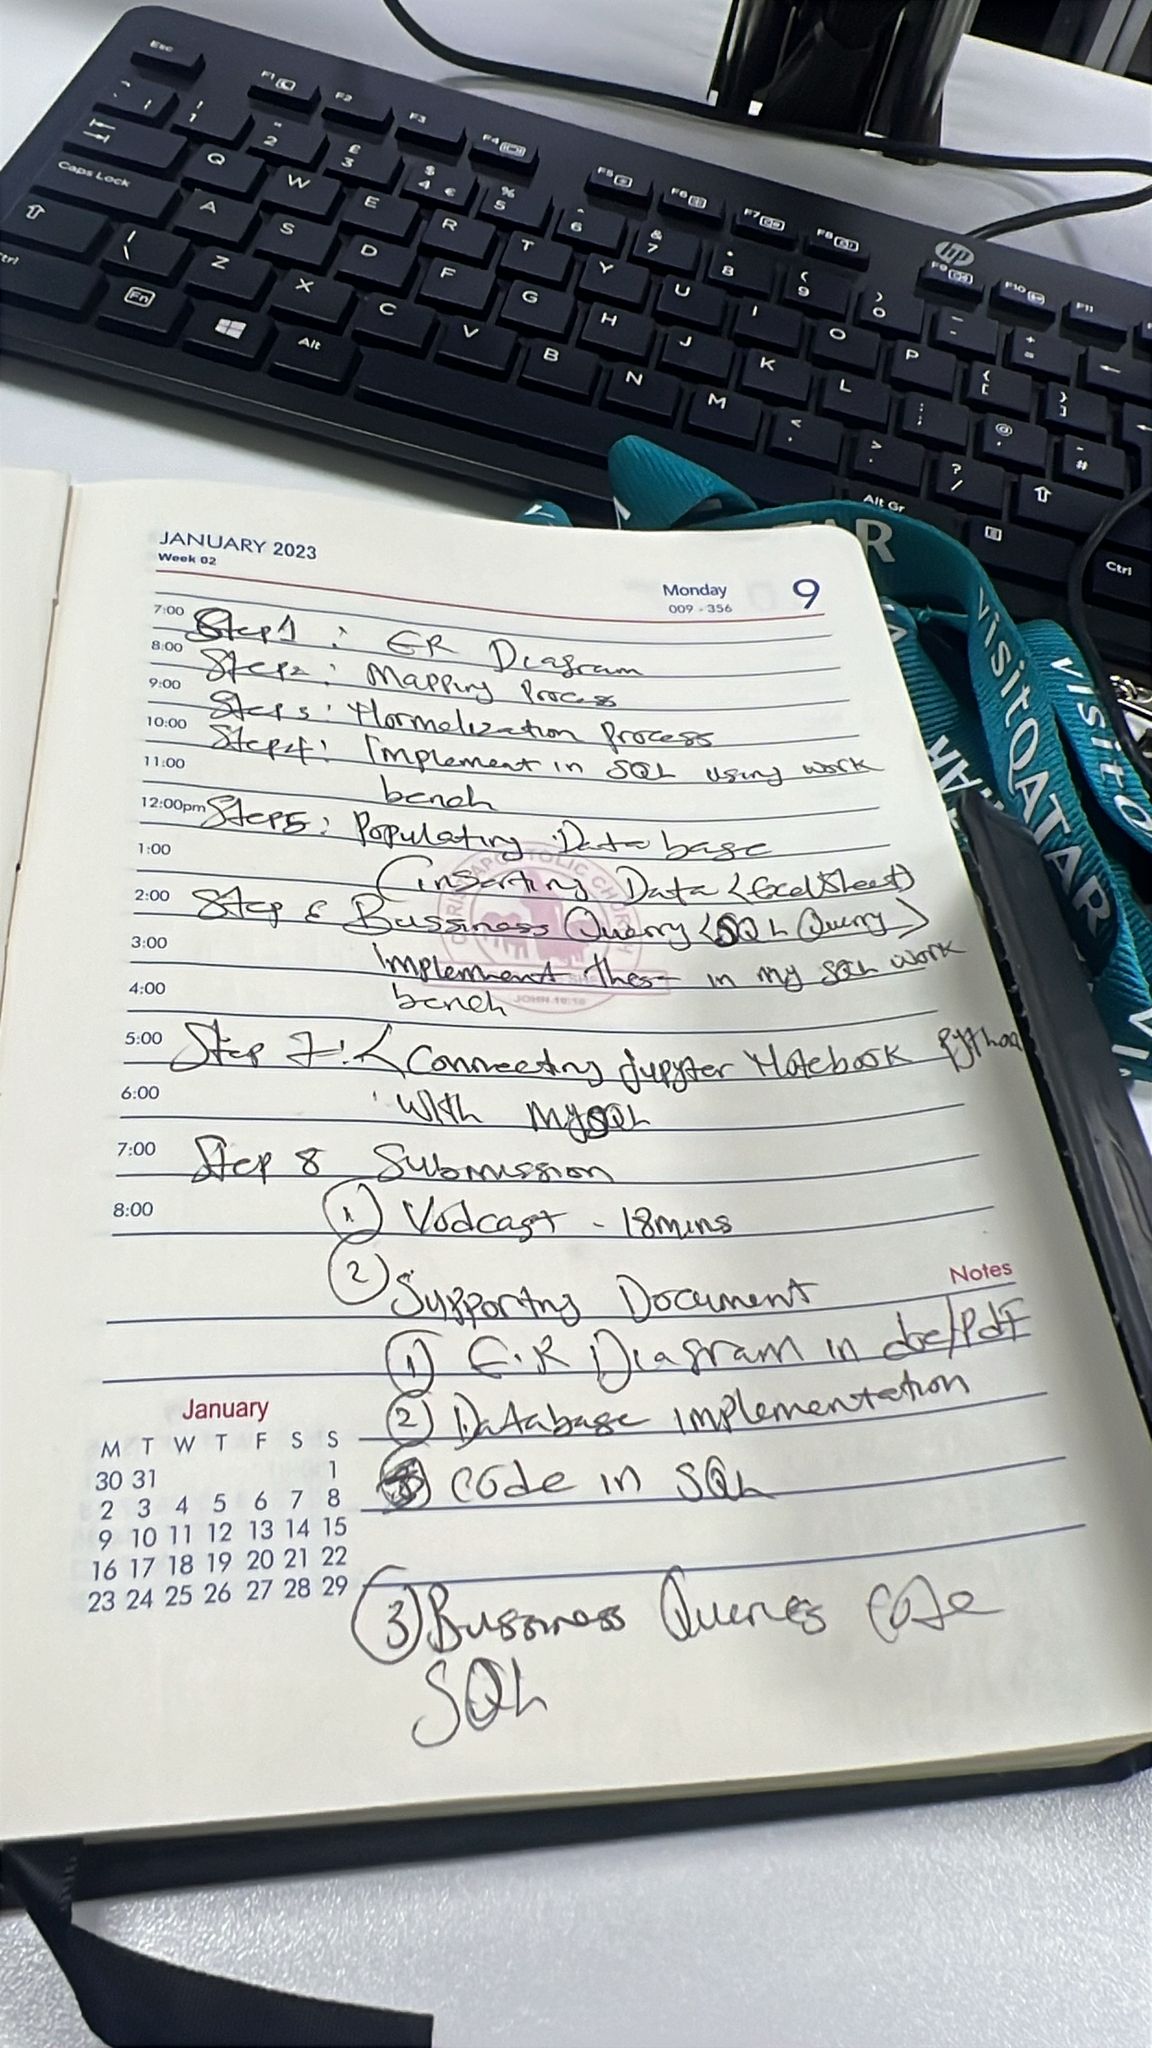 Esc
F1
F2
F3
F4
F5
F6
F7
F8
F9
F10
F11
! 1
" 2
£ 3
$ 4 €
% 5
^ 6
& 7
* 8
( 9
) 0
Q W E R T Y U I O P
Caps Lock
A S D F G H J K L
Z X C V B N M
Ctrl
Fn
Alt
Alt Gr
Ctrl
hp
visitQATAR
JANUARY 2023
Week 02
Monday
009 - 356
9
7:00 Step1 : ER Diagram
8:00 Step2 : Mapping Process
9:00 Step3 : Normelization Process
10:00 Step4 : Implement in SQL using work
11:00 bench
12:00pm Step5 : Populating Database
1:00 (inserting Data <Excelsheet)
2:00 Step 6 Bussiness Querry <SQL Query>
3:00 Implement these in my SQL work
4:00 bench
5:00 Step 7 : < Connecting jupyter Notebook Python
6:00 with MySQL
7:00 Step 8 Submission
8:00 1 Vodcast - 18mins
Notes
2 Supporting Document
1) E.R Diagram in doc/Pdf
2) Database implementation
code in SQL
3) Bussiness Queries code
SQL
January
M T W T F S S
30 31 1
2 3 4 5 6 7 8
9 10 11 12 13 14 15
16 17 18 19 20 21 22
23 24 25 26 27 28 29
JOHN 10:16